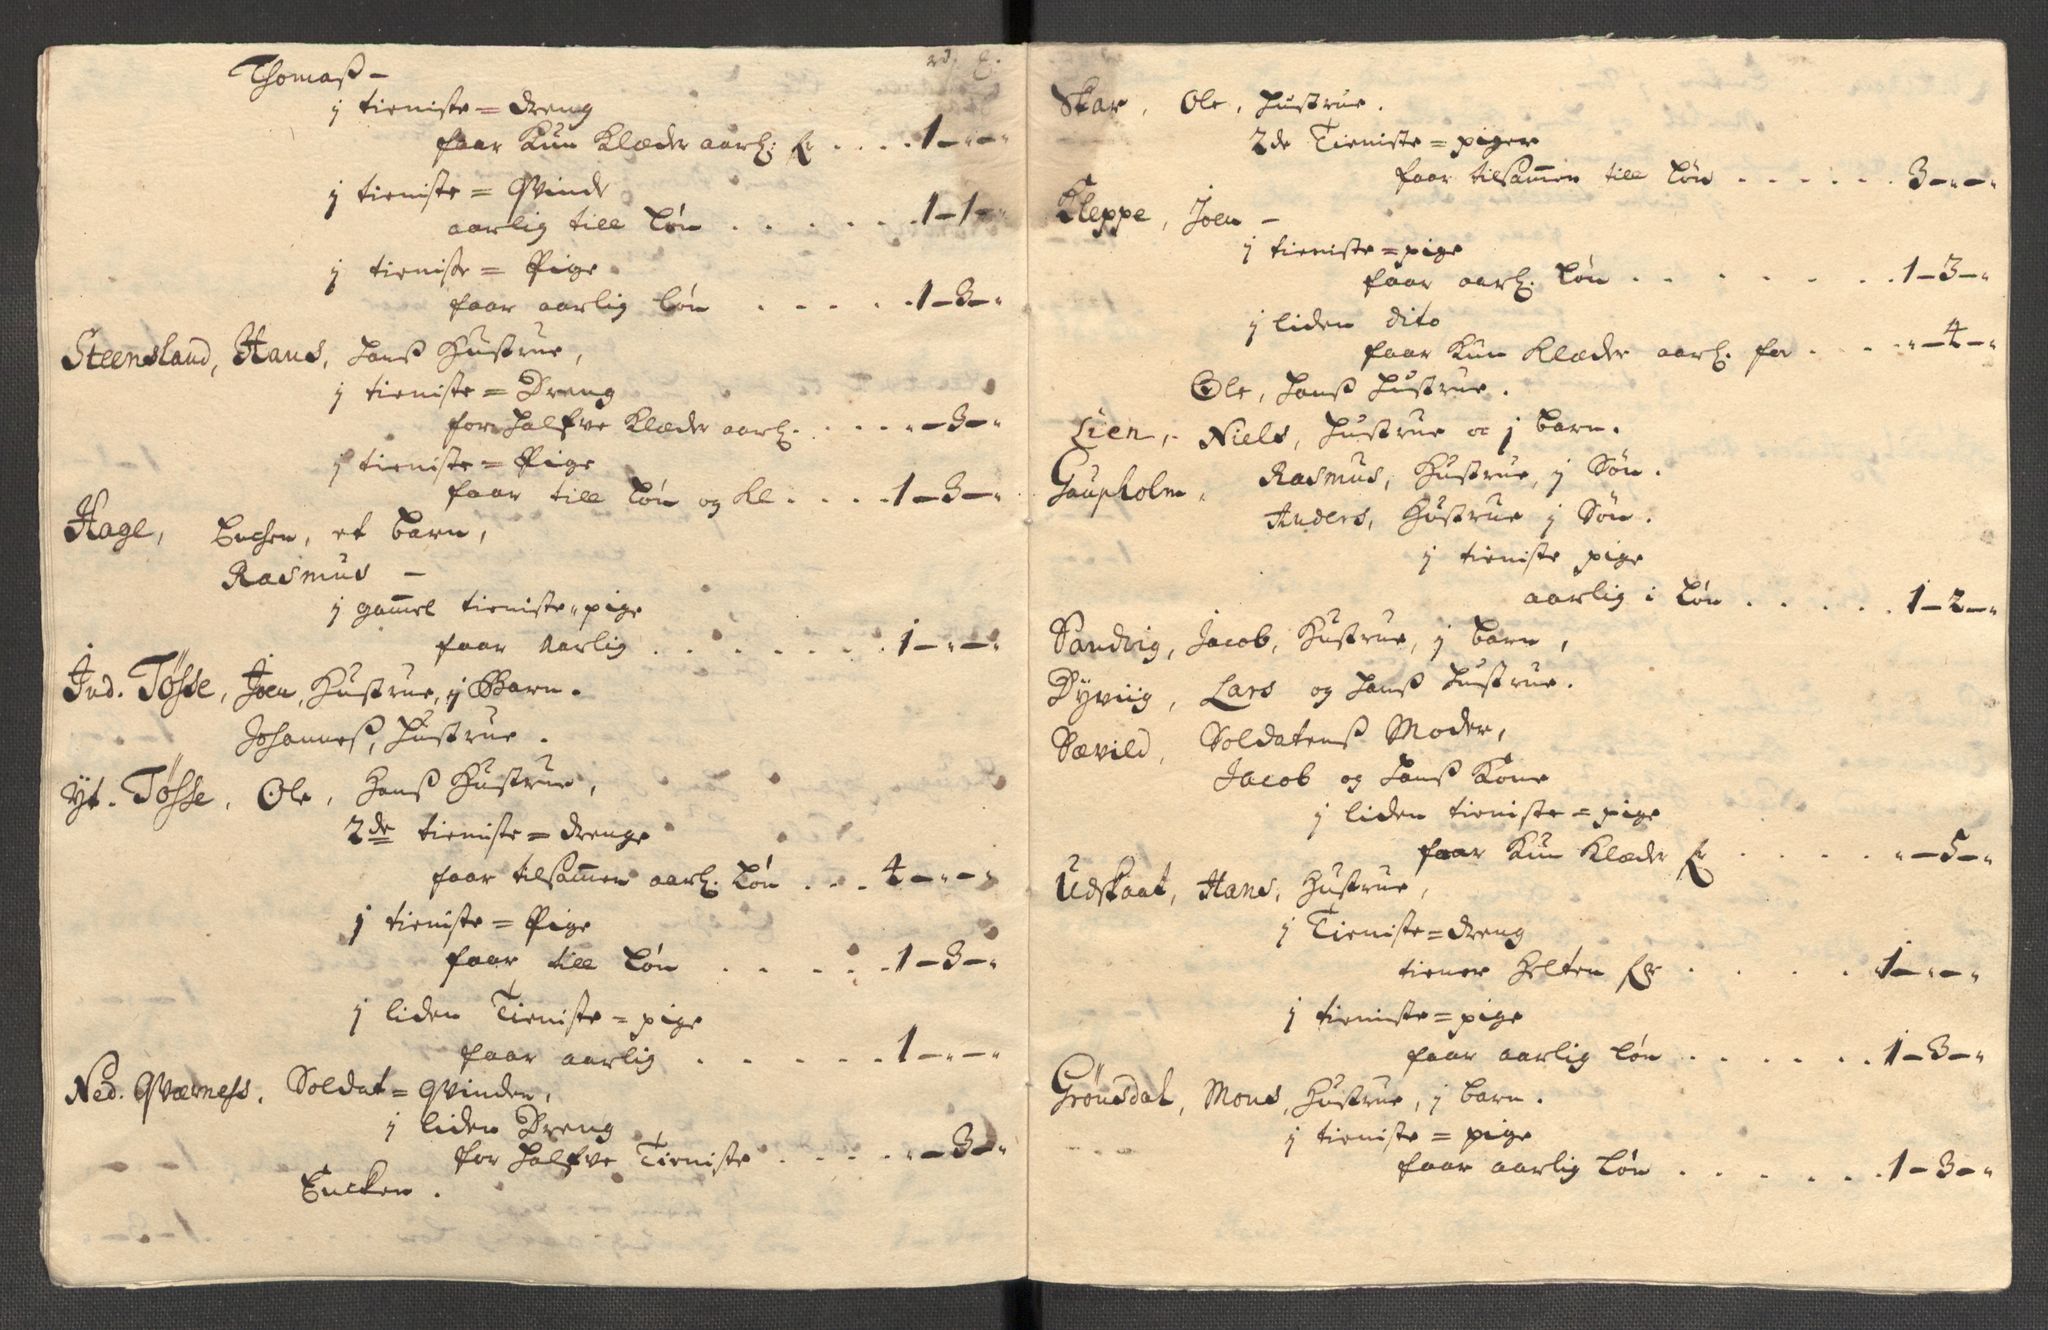 Thomaß –
j tieniste = dreng
faar Kun Klæder aarl: for . . . . 1 – „ – „
j tieniste = Qvinde
aarlig till Løn . . . . . . 1 – 1 – „
j tieniste = Pige
faar aarlig Løn . . . . . 1 – 3 – „
Steensland, Hans, Hanß Hustrue,
j tieniste = Dreng
for Halfve Klæder aarl. . . . . „ – 3 – „
j tieniste = Pige
faar till Løn og Kl . . . . 1 – 3 – „
Hage, Enchen, et barn,
Rasmus –
j gam̄el tieniste „ pige
faar Aarlig . . . . . . . 1 – „ – „
Ind. Tøsse, Joen, Hustrue, j Barn.
Johanneß, Hustrue.
Yt. Tøsse, Ole, Hanß Hustrue,
2de tieniste = drenge
faar tilsam̄en aarl. Løn . . . 4 – „ – „
j tieniste = Pige
faar till Løn . . . . . 1 – 3 – „
j liden Tieniste = pige
faar aarlig . . . . . . 1 – „ – „
Ned. Qværness, Soldat = Qvinden,
j liden Dreng
for Halfve Tieniste . . . . „ – 3 – „
Encken.
Skar, Ole, Hustrue.
2de Tieniste = piger
faar tilsam̄en till Løn . . . . . . 3 – „ – „
Kleppe, Joen –
j tieniste = pige
faar aarl. Løn . . . . . . . 1 – 3 – „
j liden dito
faar Kun Klæder aarl. for . . . . „ – 4 – „
Ole, Hanß Hustrue.
Lien, Niels, Hustrue oc j barn.
Gaupholm, Rasmus, Hustrue, j Søn.
Anders, Hustrue j Søn.
j tieniste pige
aarlig i Løn . . . . . 1 – 2 – „
Sandvig, Jacob, Hustrue, j barn,
Dyviig, Lars og Hanß Hustrue.
Sævild, Soldatenß Moder,
Jacob og Hanß Kone
j liden tieniste = pige
faar Kun Klæder for . . . . „ – 5 – „
Udskaat, Hans, Hustrue,
j Tieniste = dreng
tiener Helten for . . . . 1 – „ – „
j tieniste = pige
faar aarlig Løn . . . . . . 1 – 3 – „
Grønsdal, Mons, Hustrue, j barn.
j tieniste = pige
faar aarlig Løn . . . . . . 1 – 3 – „